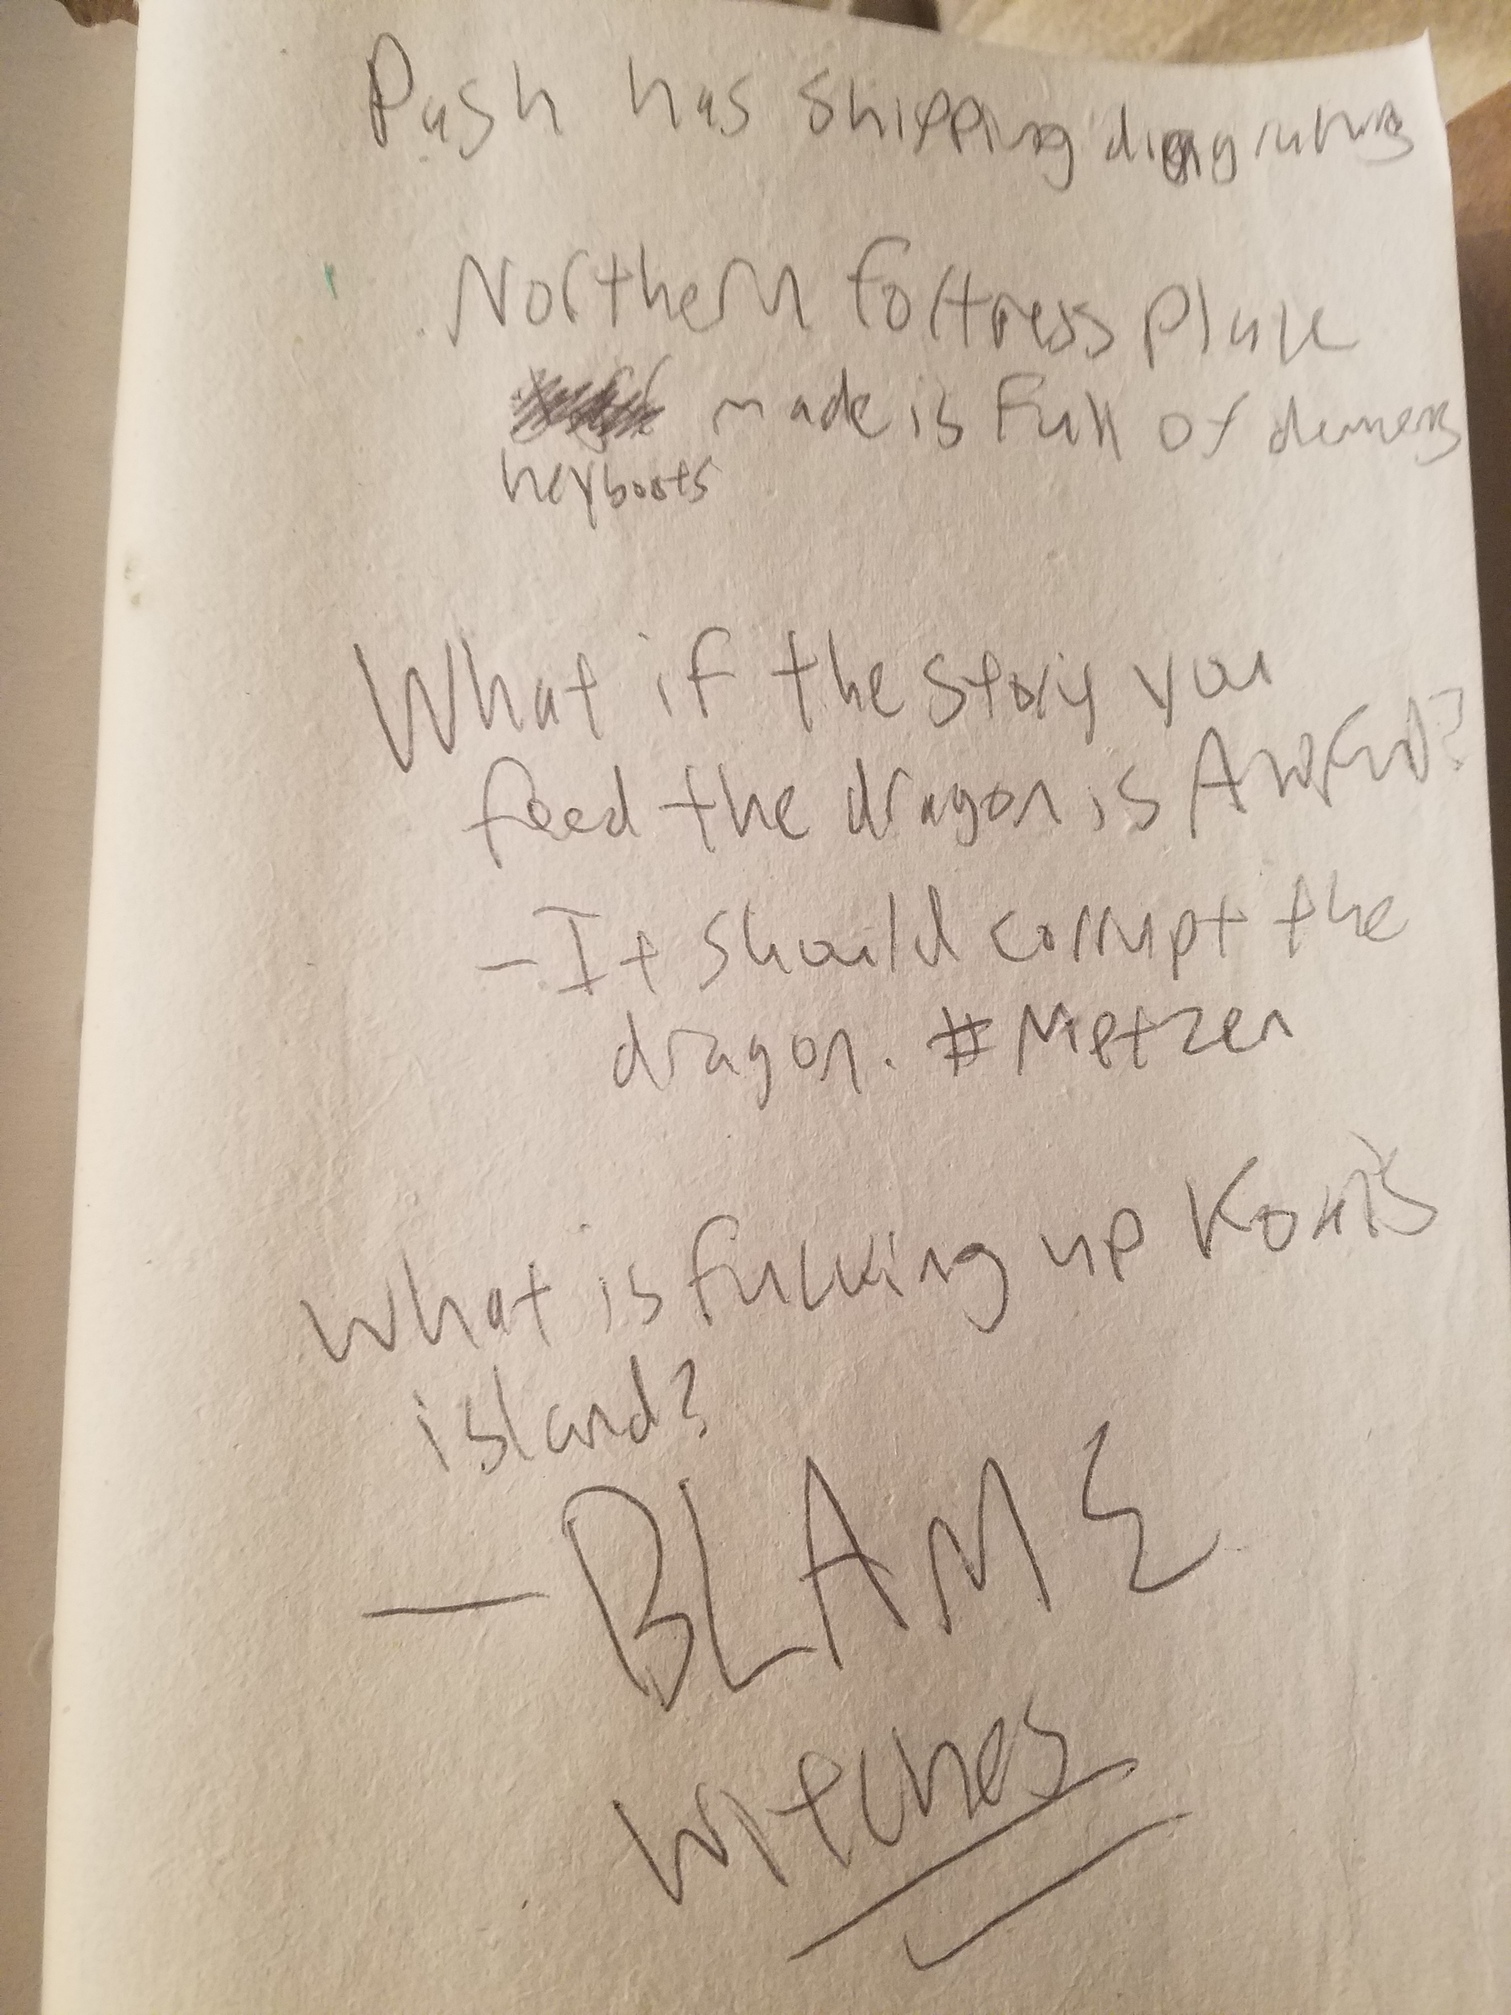 Push has shipping diagrams
Northern fortress place
made is full of demons
heyboots
What if the story you
feed the dragon is AWFUL?
- It should corrupt the
dragon. #Metzen
What is fucking up
island?
- BLAME
witches